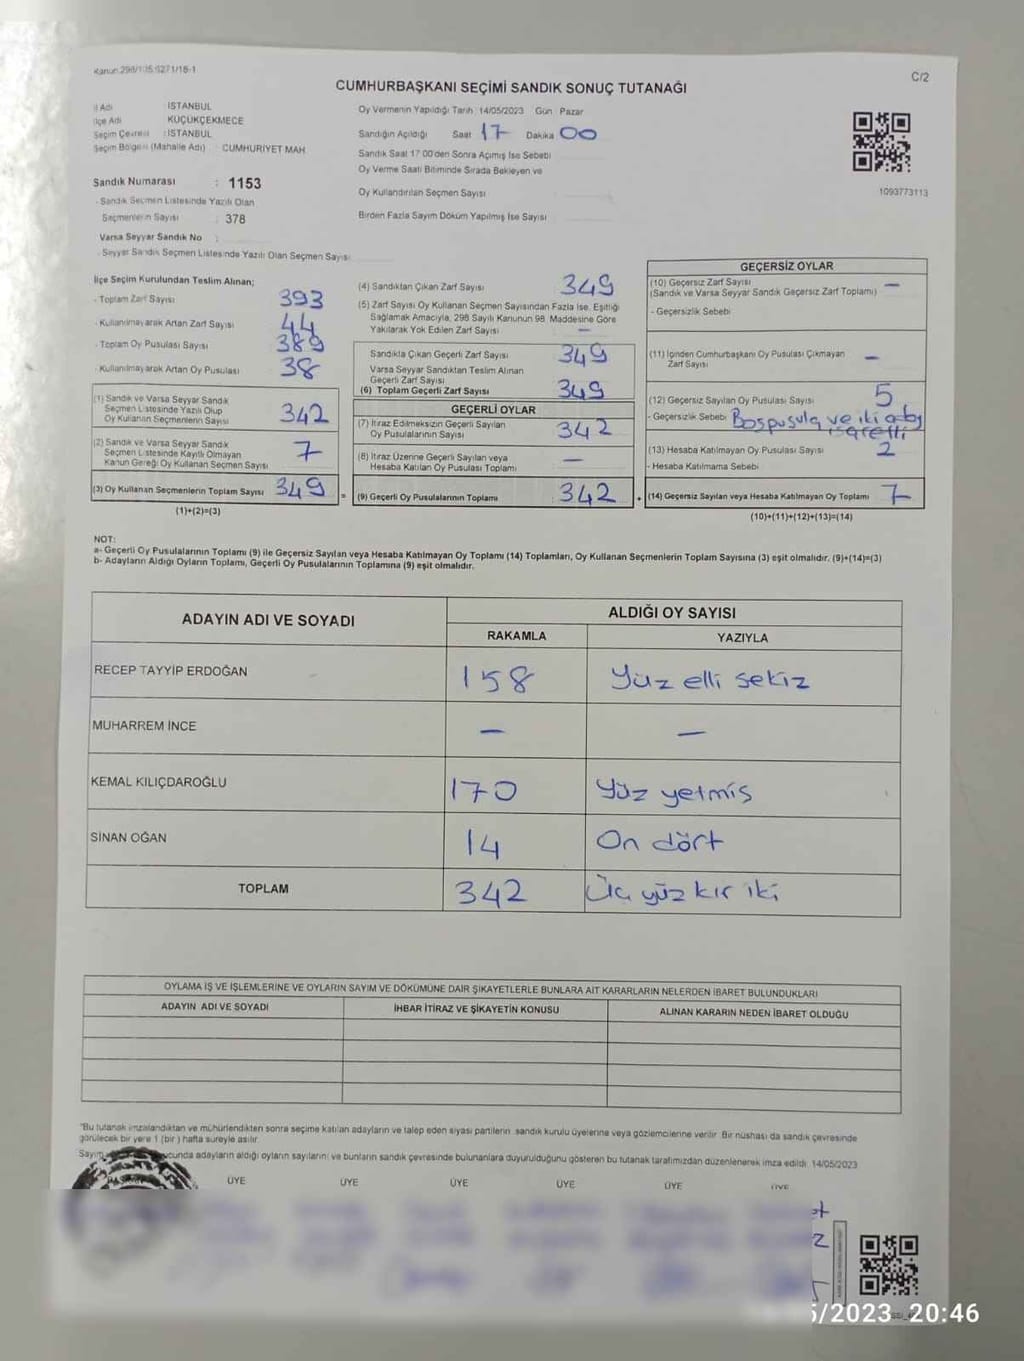 Kanun 298/105,6271/18-1
C/2
CUMHURBAŞKANI SEÇİMİ SANDIK SONUÇ TUTANAĞI
İl Adı : İSTANBUL
İlçe Adı : KÜÇÜKÇEKMECE
Seçim Çevresi : İSTANBUL
Seçim Bölgesi (Mahalle Adı) : CUMHURİYET MAH
Sandık Numarası : 1153
- Sandık Seçmen Listesinde Yazılı Olan
Seçmenlerin Sayısı : 378
Varsa Seyyar Sandık No :
- Seyyar Sandık Seçmen Listesinde Yazılı Olan Seçmen Sayısı
Oy Vermenin Yapıldığı Tarih : 14/05/2023 Gün : Pazar
Sandığın Açıldığı Saat 17 Dakika 00
Sandık Saat 17:00'den Sonra Açılmış İse Sebebi
Oy Verme Saati Bitiminde Sırada Bekleyen ve
Oy Kullandırılan Seçmen Sayısı
Birden Fazla Sayım Döküm Yapılmış İse Sayısı
1093773113
İlçe Seçim Kurulundan Teslim Alınan;
- Toplam Zarf Sayısı 393
- Kullanılmayarak Artan Zarf Sayısı 44
- Toplam Oy Pusulası Sayısı 389
- Kullanılmayarak Artan Oy Pusulası 38
(1) Sandık ve Varsa Seyyar Sandık
Seçmen Listesinde Yazılı Olup
Oy Kullanan Seçmenlerin Sayısı 342
(2) Sandık ve Varsa Seyyar Sandık
Seçmen Listesinde Kayıtlı Olmayan
Kanun Gereği Oy Kullanan Seçmen Sayısı 7
(3) Oy Kullanan Seçmenlerin Toplam Sayısı 349
(1)+(2)=(3)
(4) Sandıktan Çıkan Zarf Sayısı 349
(5) Zarf Sayısı Oy Kullanan Seçmen Sayısından Fazla İse, Eşitliği
Sağlamak Amacıyla, 298 Sayılı Kanunun 98. Maddesine Göre
Yakılarak Yok Edilen Zarf Sayısı –
Sandıkta Çıkan Geçerli Zarf Sayısı 349
Varsa Seyyar Sandıktan Teslim Alınan
Geçerli Zarf Sayısı
(6) Toplam Geçerli Zarf Sayısı 349
GEÇERLİ OYLAR
(7) İtiraz Edilmeksizin Geçerli Sayılan
Oy Pusulalarının Sayısı 342
(8) İtiraz Üzerine Geçerli Sayılan veya
Hesaba Katılan Oy Pusulası Toplamı –
= (9) Geçerli Oy Pusulalarının Toplamı 342 +
GEÇERSİZ OYLAR
(10) Geçersiz Zarf Sayısı –
(Sandık ve Varsa Seyyar Sandık Geçersiz Zarf Toplamı)
- Geçersizlik Sebebi
(11) İçinden Cumhurbaşkanı Oy Pusulası Çıkmayan
Zarf Sayısı –
(12) Geçersiz Sayılan Oy Pusulası Sayısı 5
- Geçersizlik Sebebi Boş pusula ve iki aday
işaretli
(13) Hesaba Katılmayan Oy Pusulası Sayısı 2
- Hesaba Katılmama Sebebi
(14) Geçersiz Sayılan veya Hesaba Katılmayan Oy Toplamı 7
(10)+(11)+(12)+(13)=(14)
NOT:
a- Geçerli Oy Pusulalarının Toplamı (9) ile Geçersiz Sayılan veya Hesaba Katılmayan Oy Toplamı (14) Toplamları, Oy Kullanan Seçmenlerin Toplam Sayısına (3) eşit olmalıdır. (9)+(14)=(3)
b- Adayların Aldığı Oyların Toplamı, Geçerli Oy Pusulalarının Toplamına (9) eşit olmalıdır.
ADAYIN ADI VE SOYADI
ALDIĞI OY SAYISI
RAKAMLA YAZIYLA
RECEP TAYYİP ERDOĞAN 158 Yüz elli sekiz
MUHARREM İNCE – –
KEMAL KILIÇDAROĞLU 170 Yüz yetmiş
SİNAN OĞAN 14 On dört
TOPLAM 342 Üç yüz kır iki
OYLAMA İŞ VE İŞLEMLERİNE VE OYLARIN SAYIM VE DÖKÜMÜNE DAİR ŞİKAYETLERLE BUNLARA AİT KARARLARIN NELERDEN İBARET BULUNDUKLARI
ADAYIN ADI VE SOYADI İHBAR İTİRAZ VE ŞİKAYETİN KONUSU ALINAN KARARIN NEDEN İBARET OLDUĞU
"Bu tutanak imzalandıktan ve mühürlendikten sonra seçime katılan adayların ve talep eden siyasi partilerin sandık kurulu üyelerine veya gözlemcilerine verilir. Bir nüshası da sandık çevresinde
görülecek bir yere 1 (bir) hafta süreyle asılır.
Sayım cunda adayların aldığı oyların sayılarını ve bunların sandık çevresinde bulunanlara duyurulduğunu gösteren bu tutanak tarafımızdan düzenlenerek imza edildi. 14/05/2023
ÜYE ÜYE ÜYE ÜYE ÜYE ÜYE
5/2023 20:46